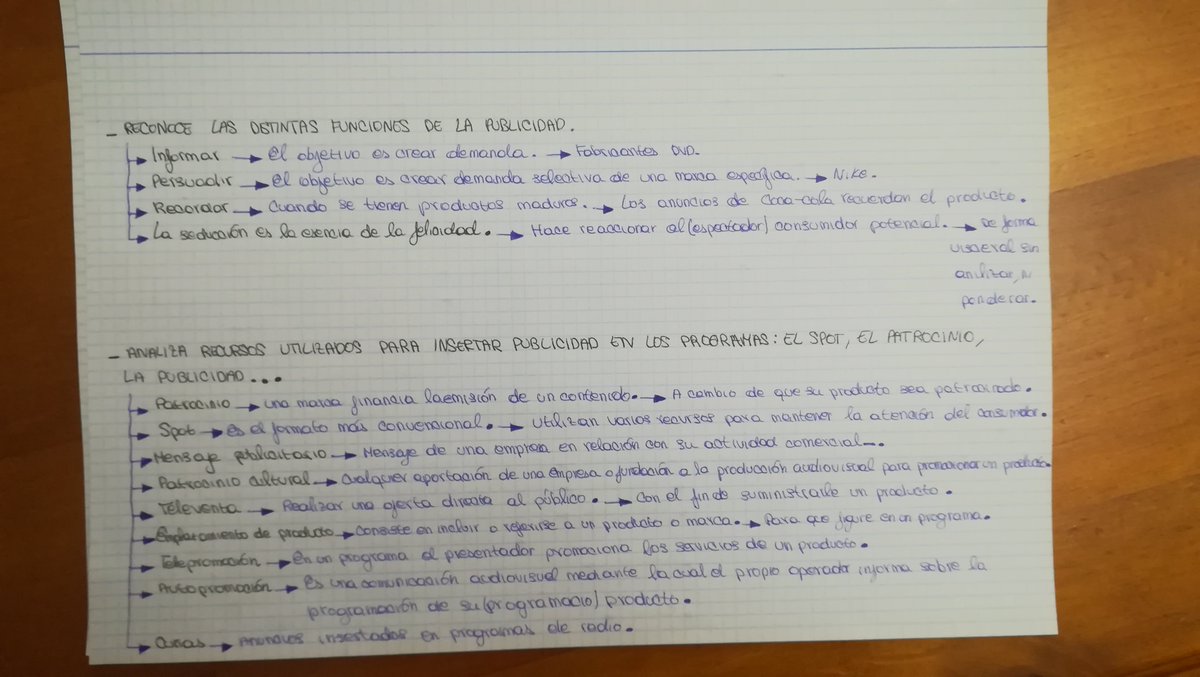 _ RECONOCE LAS DISTINTAS FUNCIONES DE LA PUBLICIDAD.
→ Informar → el objetivo es crear demanda. → Fabricantes DVD.
→ Persuadir → el objetivo es crear demanda selectiva de una marca específica. → Nike.
→ Recordar → Cuando se tienen productos maduros. → Los anuncios de Coca-cola recuerdan el producto.
→ La seducción es la esencia de la felicidad. → Hace reaccionar al (espectador) consumidor potencial. → De forma
visceral sin
analizar, ni
ponderar.
_ ANALIZA RECURSOS UTILIZADOS PARA INSERTAR PUBLICIDAD EN LOS PROGRAMAS: EL SPOT, EL PATROCINIO,
LA PUBLICIDAD...
→ Patrocinio → una marca financia la emisión de un contenido. → A cambio de que su producto sea patrocinado.
→ Spot → es el formato más convencional. → Utilizan varios recursos para mantener la atención del consumidor.
→ Mensaje publicitario → Mensaje de una empresa en relación con su actividad comercial.
→ Patrocinio cultural → Cualquier aportación de una empresa o fundación a la producción audiovisual para promocionar un producto.
→ Televenta → Realizar una oferta directa al público. → Con el fin de suministrarle un producto.
→ Emplazamiento de producto → Consiste en incluir o referirse a un producto o marca. → Para que figure en un programa.
→ Telepromoción → en un programa el presentador promociona los servicios de un producto.
→ Autopromoción → es una comunicación audiovisual mediante la cual el propio operador informa sobre la
programación de su (programacio) producto.
→ Cuñas → Anuncios insertados en programas de radio.